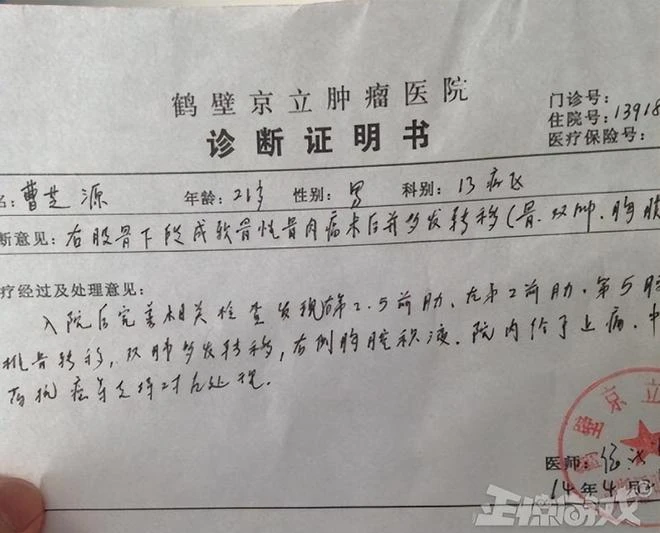 鹤壁京立肿瘤医院
诊断证明书
门诊号:
住院号: 13918
医疗保险号:
名: 曹芝源 年龄: 21岁 性别: 男 科别: 13病区
断意见: 右股骨下段成软骨性骨肉瘤术后并多发转移(骨、双肺、胸膜
疗经过及处理意见:
入院后完善相关检查发现右第2.5前肋、左第2前肋、第5胸
椎骨转移,双肺多发转移,右侧胸腔积液.院内给予止痛、中
药抗癌等支持对症处理.
医师:
14年4月
鹤壁京立
正惊游戏